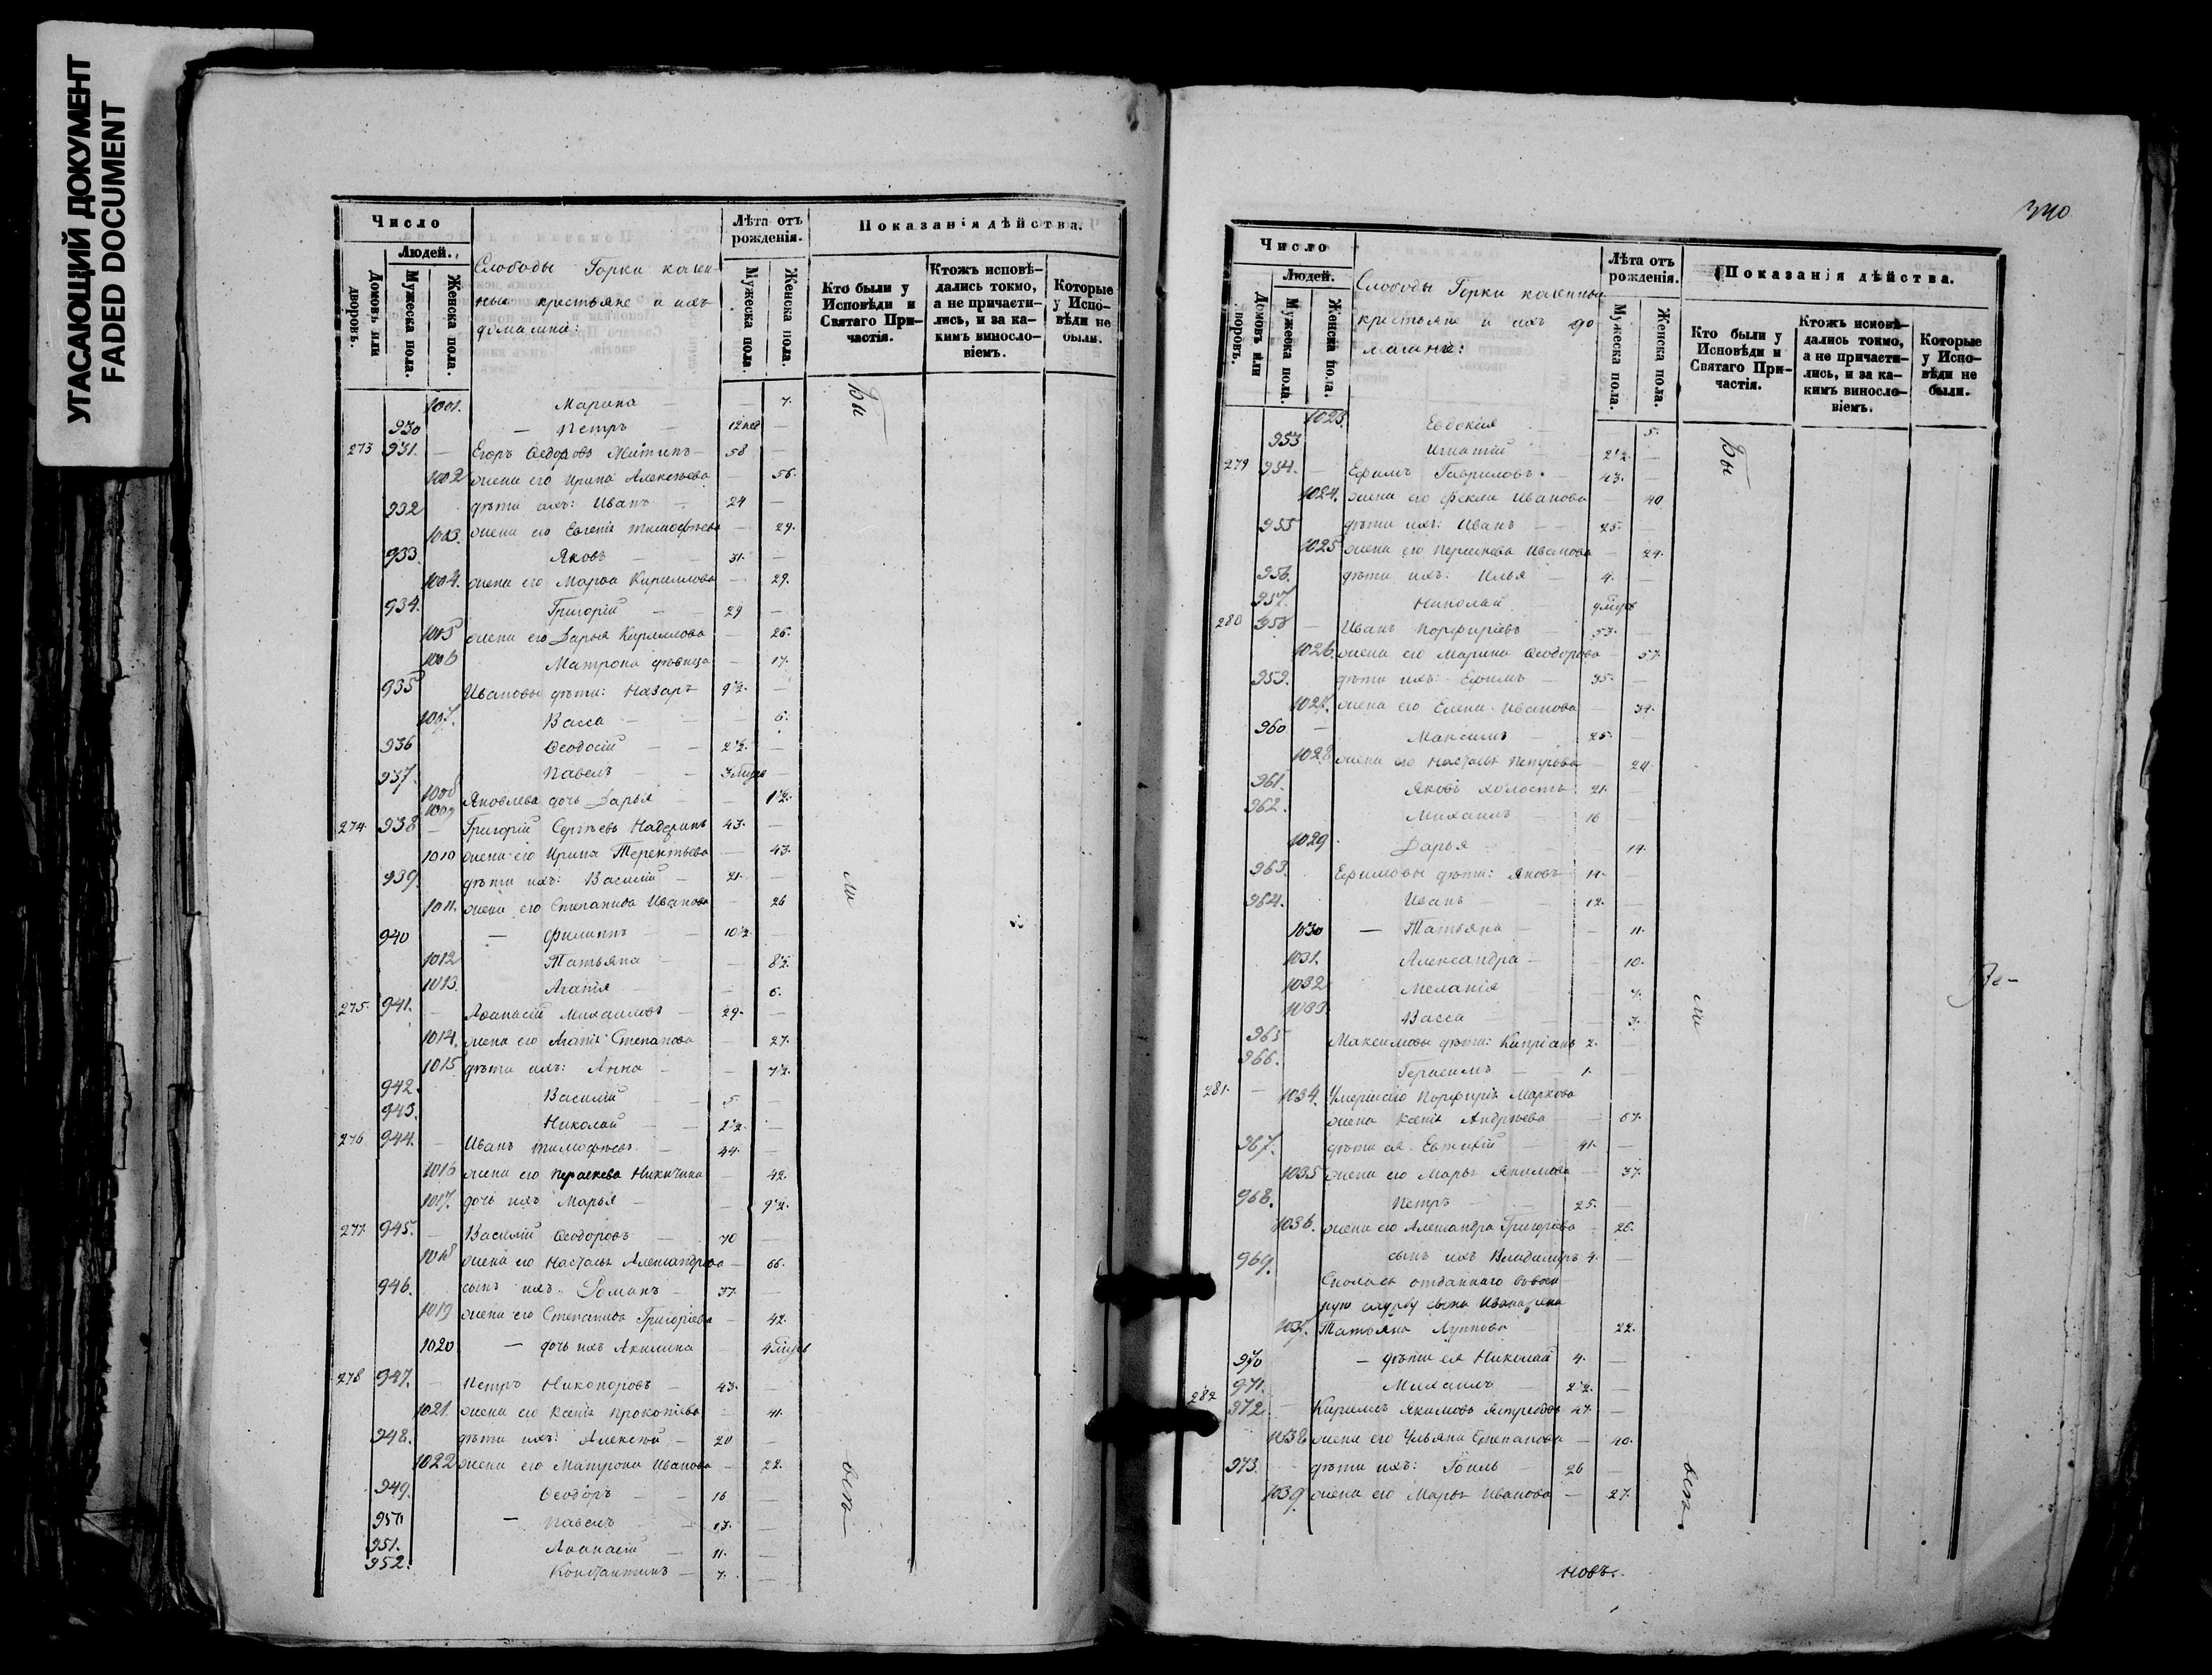 УГАСАЮЩИЙ ДОКУМЕНТ
FADED DOCUMENT
Число
Людей.
Домовъ или дворовъ.
Мужеска пола.
Женска пола.
Слободы Горки казен-
ные крестьяне и ихъ
домашніе:
Лѣта отъ рожденія.
Мужеска пола.
Женска пола.
Показанія дѣйства.
Кто были у Исповѣди и Святаго Причастія.
Ктожъ исповѣ-дались токмо, а не причасти-лись, и за ка-кимъ винословіемъ.
Которые у Испо-вѣди не были.
1001. Марина — 7.
930 — Петръ — 12 нед —
273 931. — Егоръ Ѳедоровъ — 58 —
1002 жена его Ирина Алексѣева — 56.
932 дѣти ихъ: Иванъ — 24 —
1003. жена его Евгенія Тимофѣева — 29.
933. Яковъ — 31. —
1004. жена его Марѳа Кириллова — 29.
934. Григорій — — 29 —
1005 жена его Дарья Кириллова — 26.
1006 Матрона дѣвица — 17.
935 Ивановы дѣти: Назаръ 9½. —
1007. Васса — — 6.
936 Ѳеодосій — — 2½. —
937. Павелъ — — 3 мцъ —
1008 1009 Яковлева дочь Дарья — — 1½.
274. 938 — Григорій Сергѣевъ 43. —
1010 жена его Ирина Терентьева — 43.
939. дѣти ихъ: Василій — 21. —
1011. жена его Степанида Иванова — 26
940 — Филиппъ — — 10½. —
1012 Татьяна — — 8½.
1013. Агапія — — 6.
275. 941. — Аѳанасій Михаиловъ — 29. —
1014. жена его Агапія Степанова — 27.
1015 дѣти ихъ: Анна — — 7½.
942. Василій — — 5. —
943. Николай — — 2½. —
276 944. — Иванъ Тимофѣевъ — 44. —
1016 жена его Пераскева Никитина — 42.
1017. дочь ихъ Марья — — 9½.
277. 945. — Василій Ѳеодоровъ — 70 —
1018 жена его Настасья Александрова — 66.
946. сынъ ихъ Романъ — 37. —
1019 жена его Степанида Григорьева — 42.
1020 — дочь ихъ Акилина — 4 мцъ
278 947. — Петръ Никоноровъ — 43. —
1021. жена его Ксенія Прокопіева — 41.
948. дѣти ихъ: Алексѣй — 20 —
1022 жена его Матрона Иванова — 22.
949. Ѳеодоръ — — 16 —
950 — Павелъ — — 13. —
951. Аѳанасій — 11. —
952. Константинъ — 7. —
Бы
ли
всѣ
340
Число
Людей.
Домовъ или дворовъ.
Мужеска пола.
Женска пола.
Слободы Горки казенные
крестьяне и ихъ до
машніе:
Лѣта отъ рожденія.
Мужеска пола.
Женска пола.
Показанія дѣйства.
Кто были у Исповѣди и Святаго Причастія.
Ктожъ исповѣ-дались токмо, а не причасти-лись, и за ка-кимъ винословіемъ.
Которые у Испо-вѣди не были.
1023. Евдокія — 5.
953 Игнатій — 2½. —
279 954. — Ефимъ Гавриловъ. — 43. —
1024. жена его Фекла Иванова — 40
955 дѣти ихъ: Иванъ — — 25. —
1025 жена его Пераскева Иванова — 24.
956. дѣти ихъ: Илья — 4. —
957. Николай — 9 мцъ
280 958 — Иванъ Порфиріевъ — 53. —
1026. жена его Марина Ѳеодорова — 57.
959. дѣти ихъ: Ефимъ — 35. —
1027. жена его Елена Иванова — 34.
960 — Максимъ — 25. —
1028. жена его Настасья Петрова — 24
961. Яковъ холостъ. 21. —
962. Михаилъ — 16 —
1029. Дарья — — 14.
963. Ефимовы дѣти: Яковъ 14. —
964. Иванъ — — 12. —
1030 — Татьяна — — 11.
1031. Александра — — 10.
1032 Меланія — — 7.
1033. Васса — — 3.
965 Максимовы дѣти: Кипріанъ 2. —
966. Герасимъ — — 1. —
281. — 1034. Умершаго Порфирія Маркова
жена Ксенія Андрѣева — 67.
967. дѣти ея Евтихій — 41. —
1035 жена его Марья Якимова — 37.
968. Петръ — 25. —
1036. жена его Александра Григорьева — 26.
969. сынъ ихъ Владимиръ 4. —
отданнаго въ воен-
ную службу сына жена
1037. Татьяна Луппова — 22.
970 — дѣти ея Николай 4. —
971. Михаилъ — 2½. —
282 972. — Кирилъ Якимовъ 47. —
1038. жена его Ульяна Степанова — 40.
973. дѣти ихъ: Гоиль — 26 —
1039. жена его Марья Иванова — 27.
Бы
ли
всѣ.
новъ.